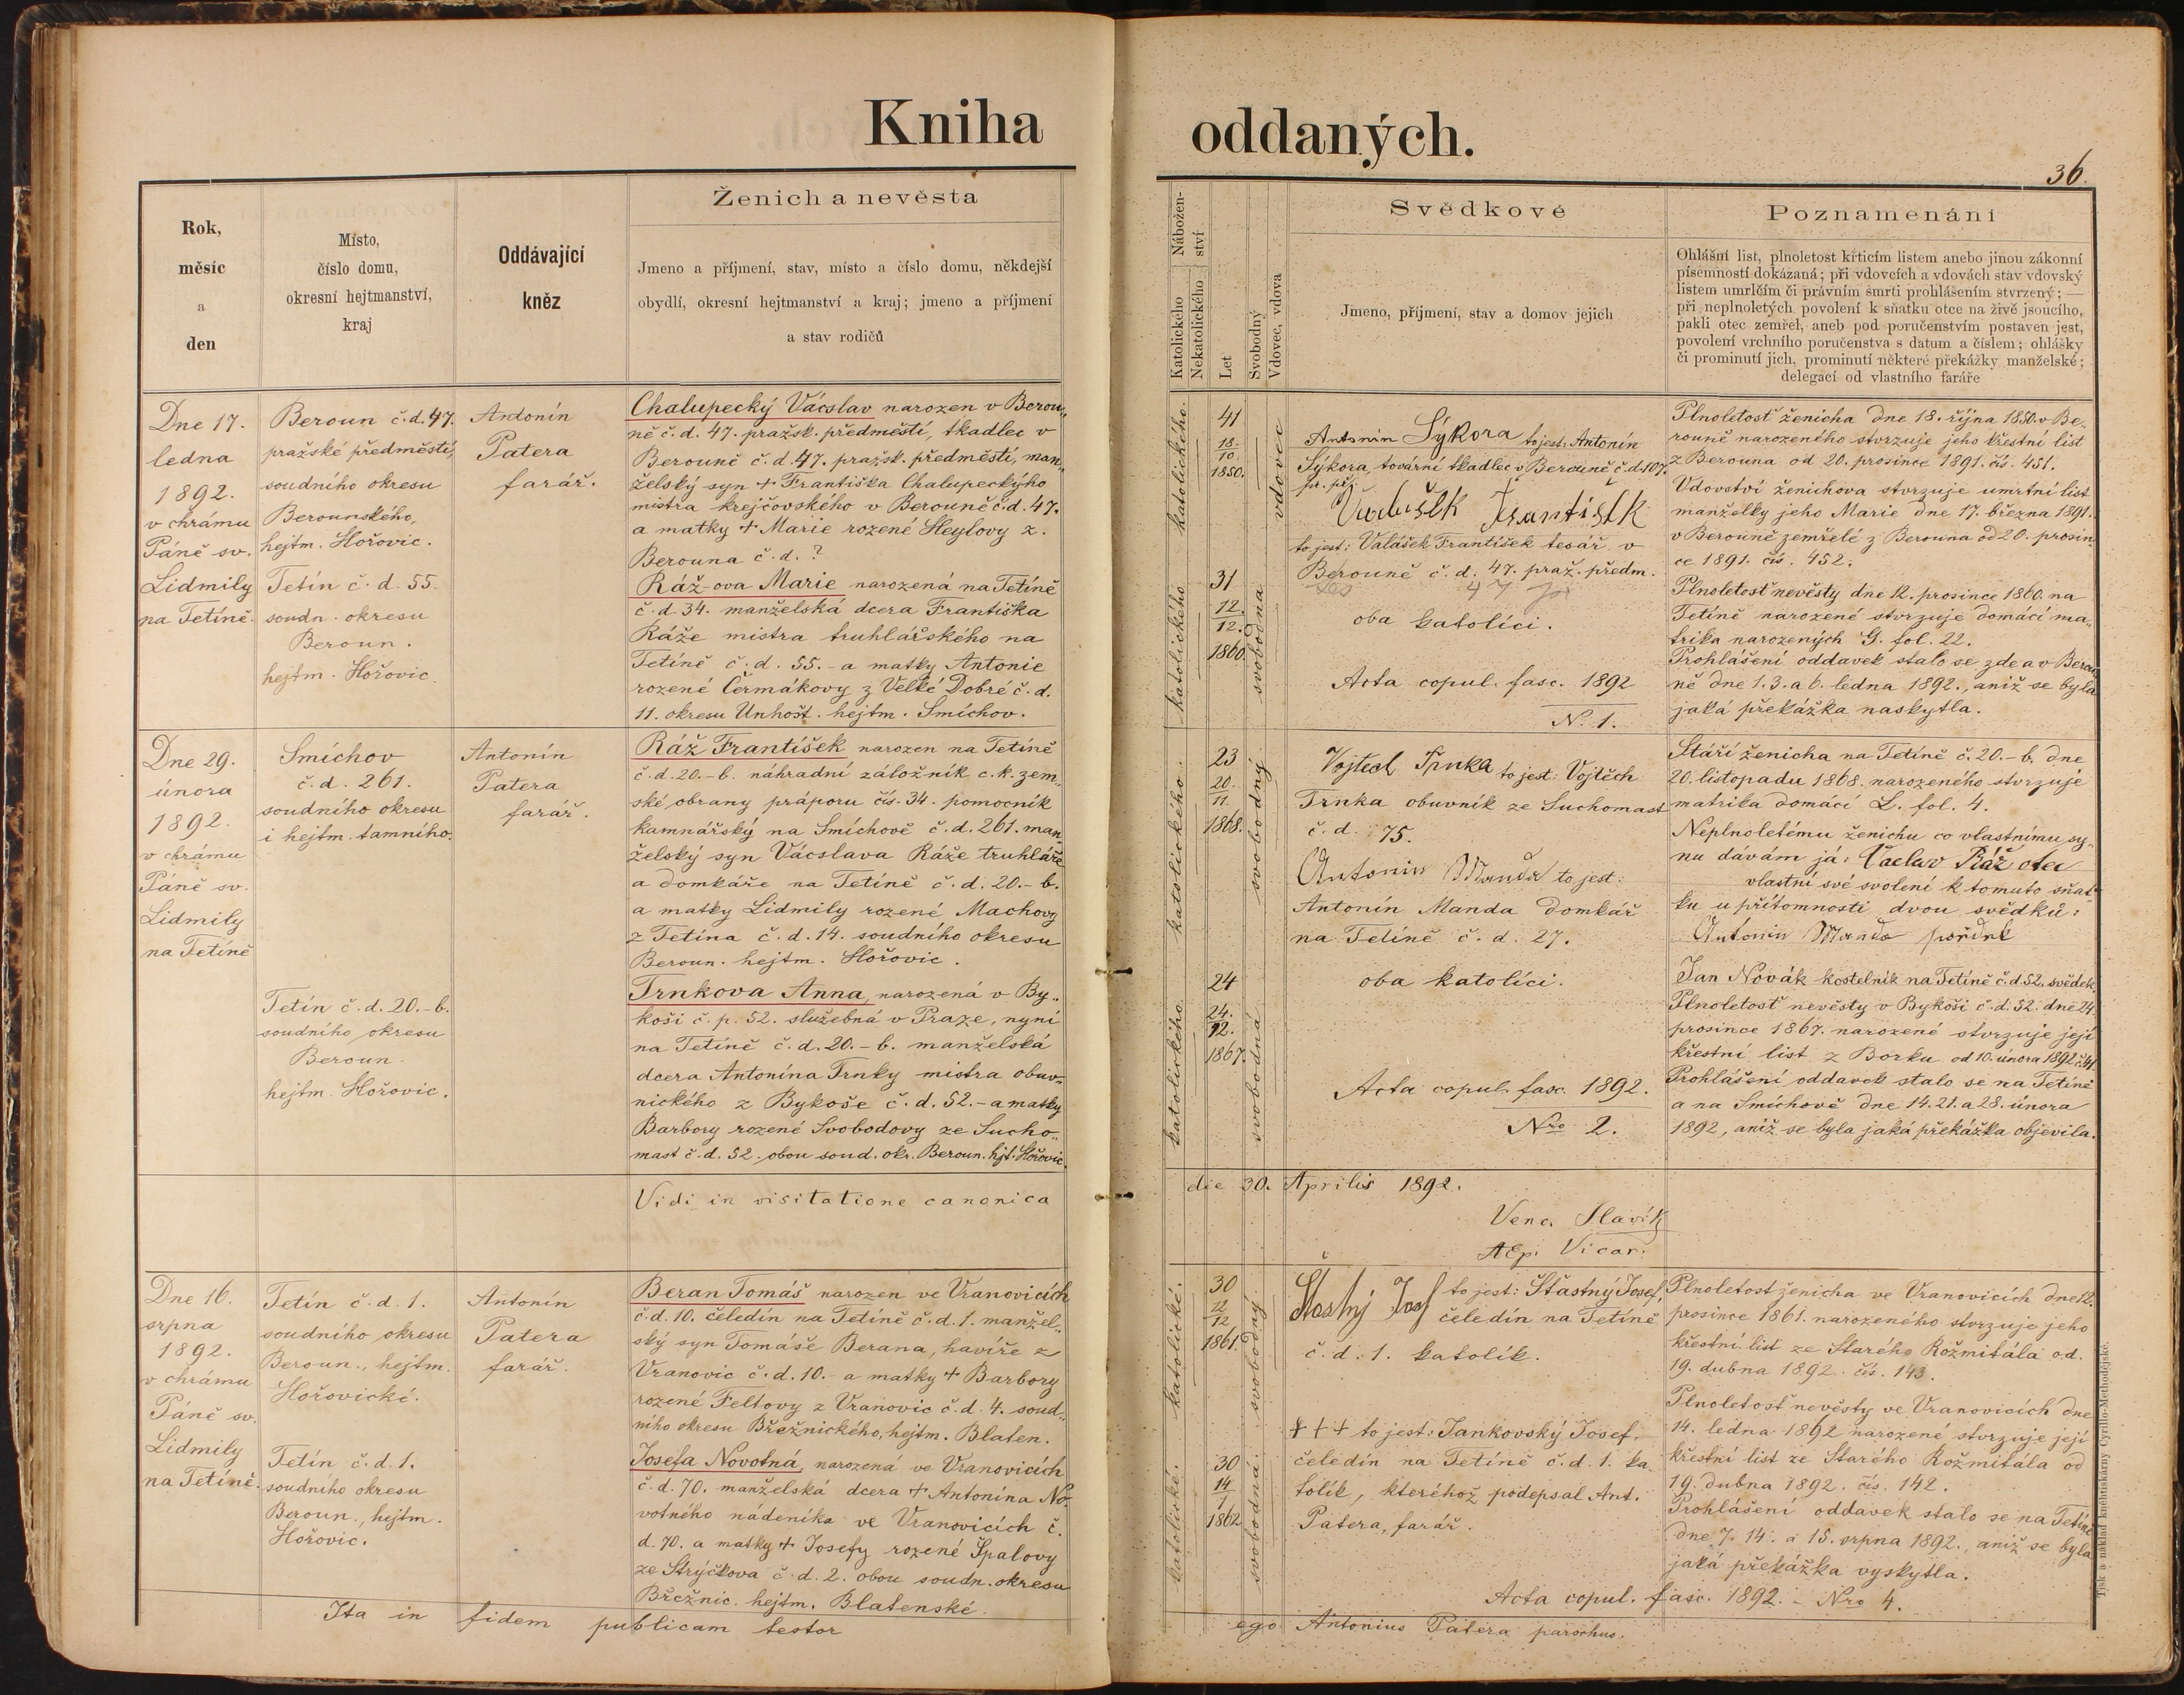 Kniha oddaných.
36.
Rok,
měsíc
a
den
Místo,
číslo domu,
okresní hejtmanství,
kraj
Oddávající
kněz
Ženich a nevěsta
Jmeno a příjmení, stav, místo a číslo domu, někdejší
obydlí, okresní hejtmanství a kraj; jmeno a příjmení
a stav rodičů
Nábožen-
ství
Katolického
Nekatolického
Let
Svobodný
Vdovec, vdova
Svědkové
Jmeno, příjmení, stav a domov jejich
Poznamenání
Ohlášní list, plnoletost křticím listem anebo jinou zákonní
písemností dokázaná; při vdovcích a vdovách stav vdovský
listem umrlčím či právním smrti prohlášením stvrzený; —
při neplnoletých povolení k sňatku otce na živě jsoucího,
pakli otec zemřel, aneb pod poručenstvím postaven jest,
povolení vrchního poručenstva s datum a číslem; ohlášky
či prominutí jich, prominutí některé překážky manželské;
delegací od vlastního faráře
Dne 17.
ledna
1892.
v chrámu
Páně sv.
Lidmily
na Tetíně.
Beroun č. d. 47.
pražské předměstí,
soudního okresu
Berounského,
hejtm. Hořovic.
Tetín č. d. 55.
soudn. okresu
Beroun.
hejtm. Hořovic.
Antonín
Patera
farář.
Chalupecký Václav narozen v Berou„
ně č. d. 47. pražsk. předměstí, tkadlec v
Berouně č. d. 47. pražsk. předměstí, man„
želský syn + Františka Chalupeckýho
mistra krejčovského v Berouně č. d. 47.
a matky + Marie rozené Heylovy z.
Berouna č. d. ?
Ráž-ova Marie narozená na Tetíně
č. d. 34. manželská dcera Františka
Ráže mistra truhlářského na
Tetíně č. d. 55.- a matky Antonie
rozené Čermákovy z Velké Dobré č. d.
11. okresu Unhošt. hejtm. Smíchov.
katolického.
41
18.
10.
1850.
vdovec
katolického
31
12.
12.
1860.
svobodna
Antonín Sýkora to jest: Antonín
Sýkora, tovární tkadlec v Berouně č. d. 107.
pr. př.
František
to jest: Valášek František tesář v
Berouně č. d. 47. praž. předm.
oba katolíci.
Acta copul. fasc. 1892
N. 1.
Plnoletosť ženicha dne 18. října 1850. v Be„
rouně narozeného stvrzuje jeho křestní list
z Berouna od 20. prosince 1891. čís. 451.
Vdovství ženichova stvrzuje umrtní list
manželky jeho Marie dne 17. března 1891.
v Berouně zemřelé z Berouna od 20. prosin„
ce 1891. čís. 452.
Plnoletosť nevěsty dne 12. prosince 1860. na
Tetíně narozené stvrzuje domácí ma„
trika narozených G. fol. 22.
Prohlášení oddavek stalo se zde a v Berou„
ně dne 1. 3. a 6. ledna 1892., aniž se byla
jaká překážka naskytla.
Dne 29.
února
1892.
v chrámu
Páně sv.
Lidmily
na Tetíně
Smíchov
č. d. 261.
soudního okresu
i hejtm. tamního.
Tetín č. d. 20.-b.
soudního okresu
Beroun.
hejtm. Hořovic.
Antonín
Patera
farář.
Ráž František narozen na Tetíně
č. d. 20.-b. náhradní záložník c. k. zem„
ské obrany práporu čís. 34. pomocník
kamnářský na Smíchově č. d. 261. man„
želský syn Václava Ráže truhláře
a domkáře na Tetíně č. d. 20.-b.
a matky Lidmily rozené Machovy
z Tetína č. d. 14. soudního okresu
Beroun. hejtm. Hořovic.
Trnkova Anna, narozená v By„
koši č. p. 52. služebná v Praze, nyní
na Tetíně č. d. 20.-b. manželská
dcera Antonína Trnky mistra obuv„
nického z Bykoše č. d. 52.- a matky
Barbory rozené Svobodovy ze Sucho„
mast č. d. 52. obou soud. okr. Beroun. hjt. Hořovic.
katolického.
23
20.
11.
1868.
svobodný
katolického
24
24.
12.
1867.
svobodná
Vojtěch Trnka to jest: Vojtěch
Trnka obuvník ze Suchomast
č. d. 75.
Antonín Manda to jest:
Antonín Manda domkář
na Tetíně č. d. 27.
oba katolíci.
Acta copul. fasc. 1892.
Nro 2.
Stáří ženicha na Tetíně č. 20.-b. dne
20. listopadu 1868. narozeného stvrzuje
matrika domácí L. fol. 4.
Neplnoletému ženichu co vlastnímu sy„
nu dávám já: Václav Ráž otec
vlastní své svolení k tomuto sňat„
ku u přítomnosti dvou svědků:
Antonín Manda
Jan Novák kostelník na Tetíně č. d. 52. svědek
Plnoletosť nevěsty v Bykoši č. d. 52. dne 24.
prosince 1867. narozené stvrzuje její
křestní list z Borku od 10. února 1892 č. 41
Prohlášení oddavek stalo se na Tetíně
a na Smíchově dne 14. 21. a 28. února
1892, aniž se byla jaká překážka objevila.
Vidi in visitatione canonica
die 30. Aprilis 1892.
Venc. Slavík
AEp. Vicar.
Dne 16.
srpna
1892.
v chrámu
Páně sv.
Lidmily
na Tetíně.
Tetín č. d. 1.
soudního okresu
Beroun., hejtm.
Hořovické.
Tetín č. d. 1.
soudního okresu
Beroun., hejtm.
Hořovic.
Antonín
Patera
farář.
Beran Tomáš narozen ve Vranovicích
č. d. 10. čeledín na Tetíně č. d. 1. manžel„
ský syn Tomáše Berana, havíře z
Vranovic č. d. 10.- a matky + Barbory
rozené Feltovy z Vranovic č. d. 4. soud„
ního okresu Březnického, hejtm. Blaten.
Josefa Novotná, narozená ve Vranovicích
č. d. 70. manželská dcera + Antonína No„
votného nádeníka ve Vranovicích č.
d. 70. a matky + Josefy rozené Spalovy
ze Strýčkova č. d. 2. obou soudn. okresu
Březnic. hejtm. Blatenské.
katolické.
30
12
12
1861.
svobodný
katolické.
30
14
1
1862
svobodná
Šťastný Josef to jest: Šťastný Josef,
čeledín na Tetíně
č. d. 1. katolík.
+ + + to jest: Jankovský Josef.
čeledín na Tetíně č. d. 1. ka„
tolík, kteréhož podepsal Ant.
Patera, farář.
Plnoletost ženicha ve Vranovicích dne 12.
prosince 1861. narozeného stvrzuje jeho
křestní list ze Starého Rožmitála od.
19. dubna 1892. čís. 143.
Plnoletosť nevěsty ve Vranovicích dne
14. ledna 1862 narozené stvrzuje její
křestní list ze Starého Rožmitála od
19. dubna 1892. čís. 142.
Prohlášení oddavek stalo se na Tetíně
dne 7. 14. a 15. srpna 1892., aniž se byla
jaká překážka vyskytla.
Acta copul. fasc. 1892. - Nro 4.
Ita in fidem publicam testor
ego Antonius Patera parochus.
Tisk a náklad knihtiskárny Cyrillo-Methodějské.